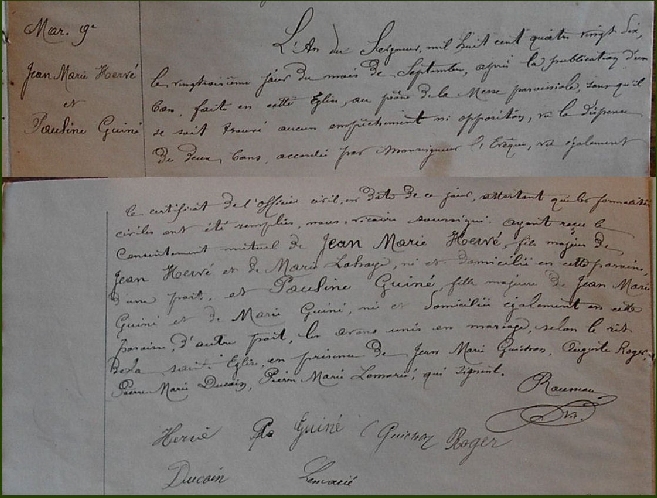 Mar. 9e
Jean Marie Hervé
et
Pauline Guiné
L'An du Seigneur, mil huit cent quatre vingt dix,
le vingt troisième jour du mois de Septembre, après la publication d'un
ban, fait en cette Eglise, au prône de la Messe paroissiale, sans qu'il
se soit trouvé aucun empêchement ni opposition, vu la dispense
de deux bans, accordée par Monseigneur l'Evêque, vu également
le certificat de l'officier civil, en date de ce jour, attestant que les formalités
civiles ont été remplies, nous, vicaire soussigné, ayant reçu le
consentement mutuel de Jean Marie Hervé, fils majeur de
Jean Hervé et de Marie, né et domicilié en cette paroisse,
d'une part, et Pauline Guiné, fille majeure de Jean Marie
Guiné et de Marie, née et domiciliée également en cette
paroisse, d'autre part, les avons unis en mariage, selon le rit
de la sainte Eglise, en présence de Jean Marie, Auguste Roger,
Pierre Marie Ducoin, Pierre Marie, qui signent.
Hervé Guiné Roger
Ducoin